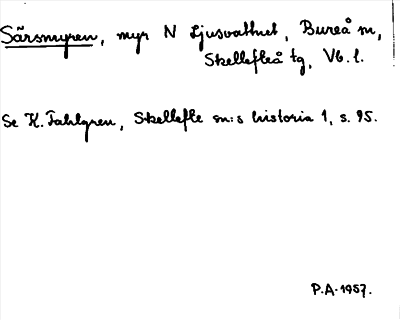 Särsmyren, myr N Ljusvattnet, Bureå sn,
Skellefteå tg, Vb. l.
Se K. Fahlgren, Skellefte sn:s historia 1, s. 95.
P.A. 1957.